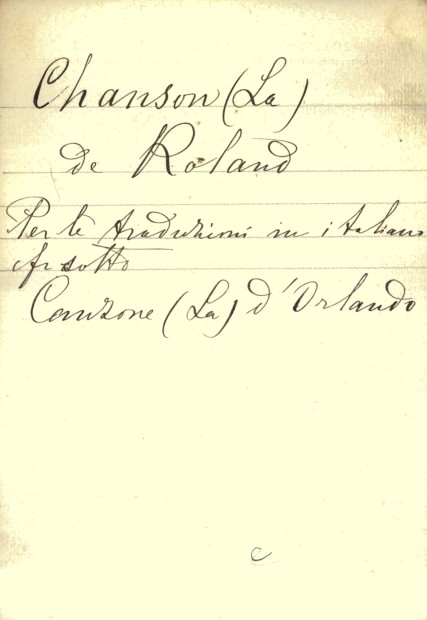 Chanson (La)
de Roland
Per le traduzioni in italiano
cfr sotto
Canzone (La) d'Orlando
c